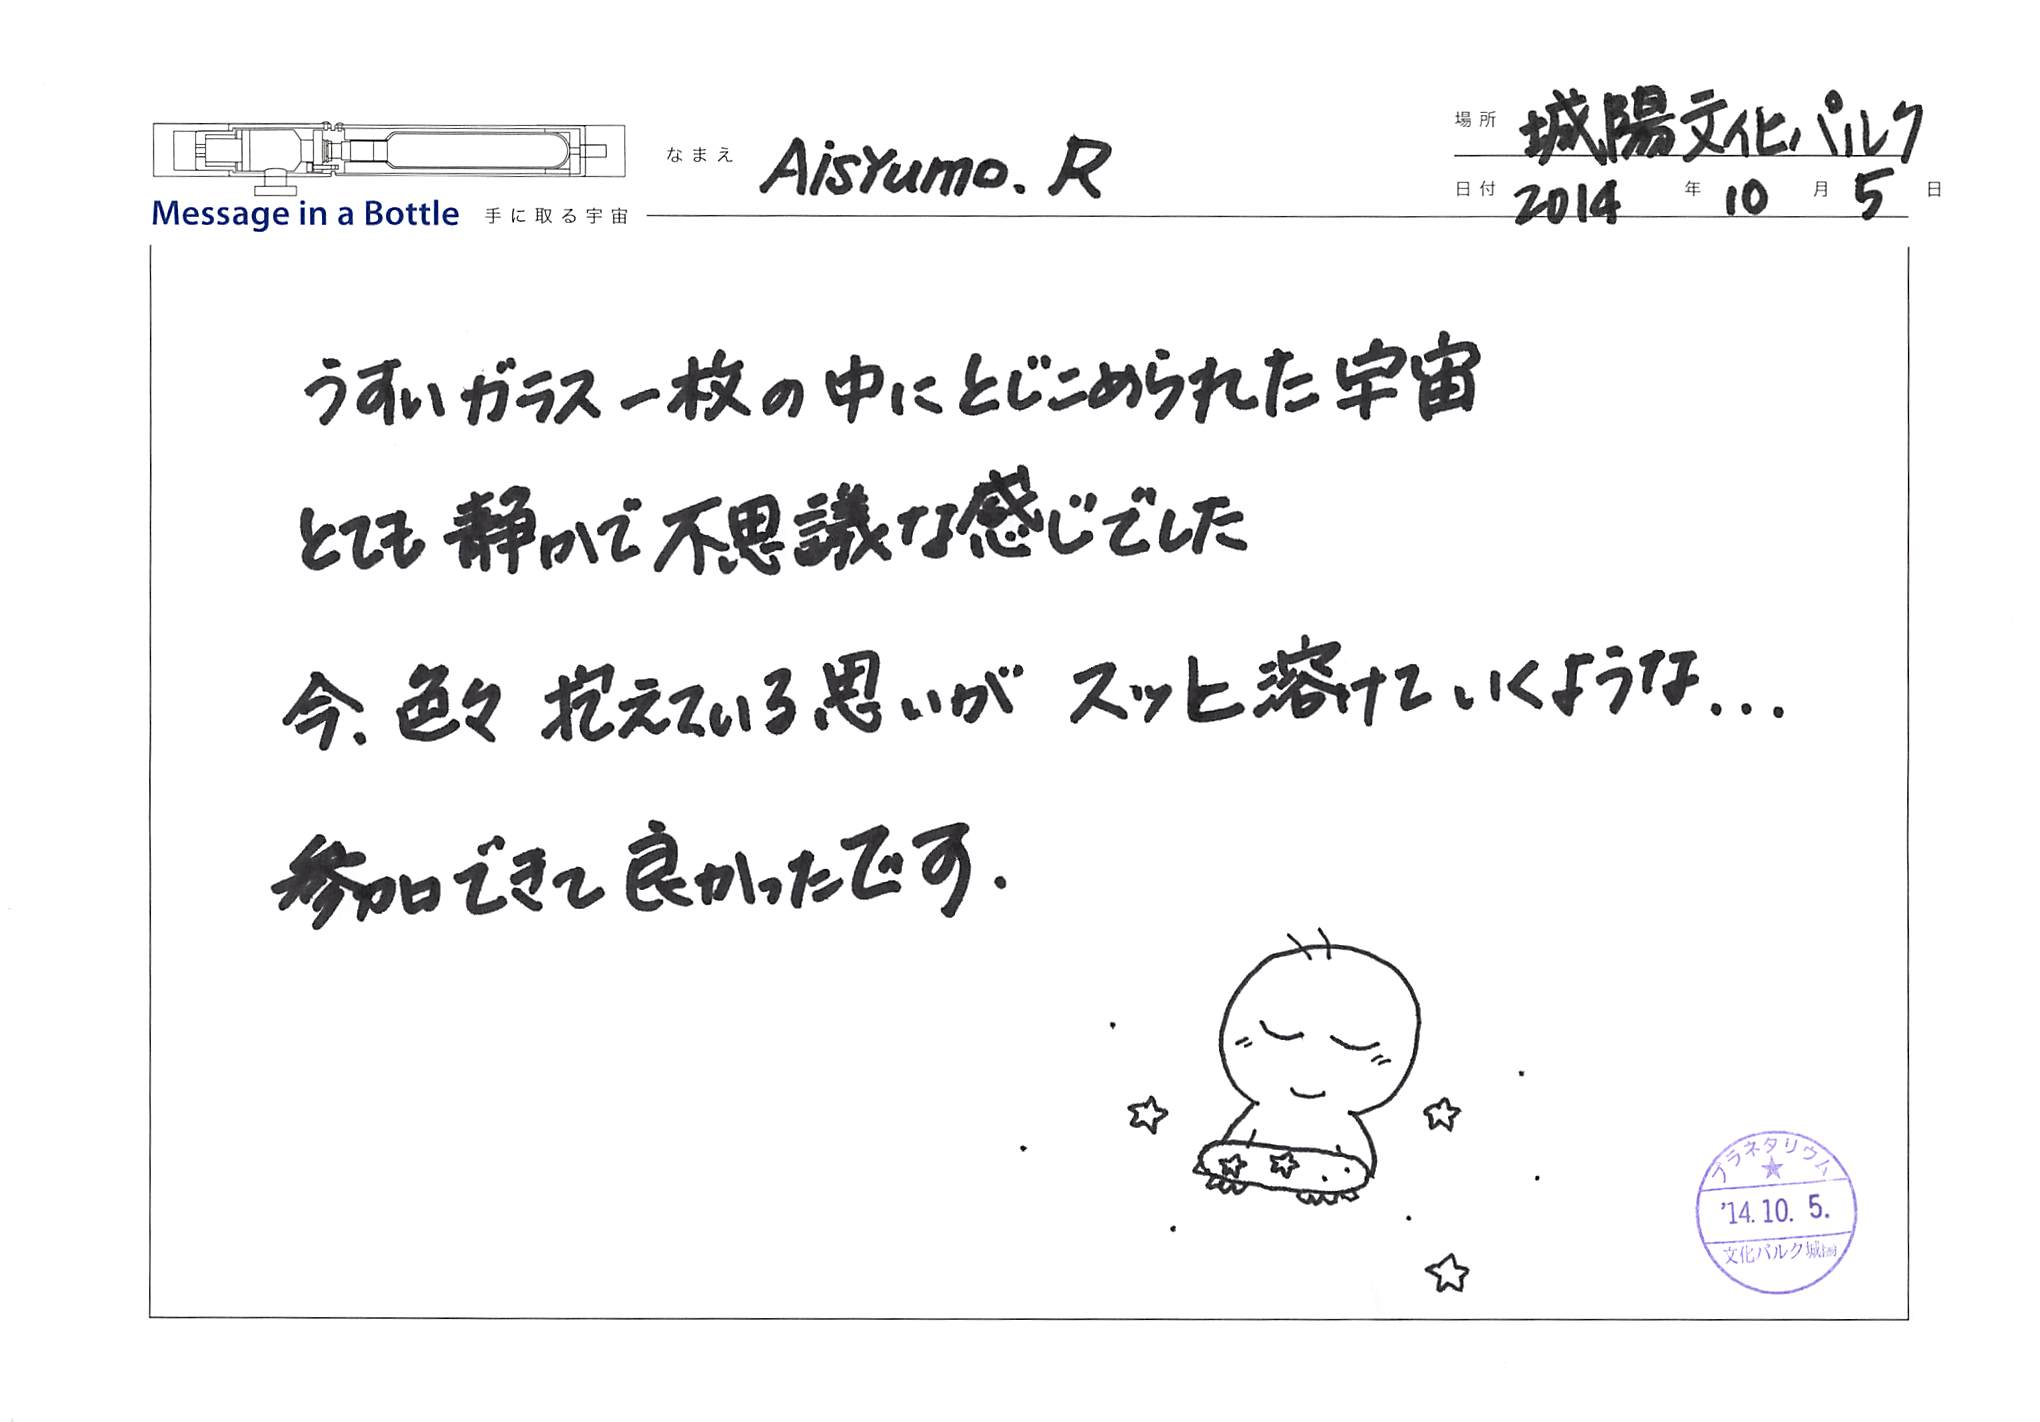 場所 城陽文化パルク
なまえ AisYumo. R
日付 2014 年 10 月 5 日
Message in a Bottle 手に取る宇宙
うすいガラス一枚の中にとじこめられた宇宙
とても静かで不思議な感じでした
今、色々 抱えている思いが スッと溶けていくような...
参加できて良かったです.
プラネタリウム
'14.10.5.
文化パルク城陽